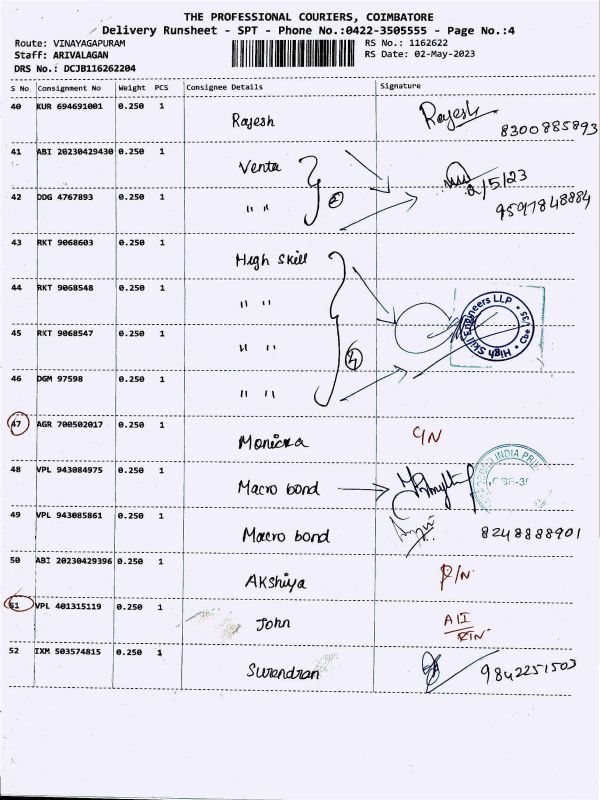 THE PROFESSIONAL COURIERS, COIMBATORE
Delivery Runsheet - SPT - Phone No.:0422-3505555 - Page No.:4
Route: VINAYAGAPURAM RS No.: 1162622
Staff: ARIVALAGAN RS Date: 02-May-2023
DRS No.: DCJB116262204
S No Consignment No Weight PCS Consignee Details Signature
40 KUR 694691001 0.250 1 Rajesh Rajesh
8300885893
41 ABI 20230429430 0.250 1 Venta 2/5/23
42 DDG 4767893 0.250 1 " " 2 9597848884
43 RKT 9068603 0.250 1 High Skill
44 RKT 9068548 0.250 1 " " High Skill Engineers LLP * Cbe /35 *
45 RKT 9068547 0.250 1 " " 4
46 DGM 97598 0.250 1 " "
47 AGR 700502017 0.250 1 Monicka
48 VPL 943084975 0.250 1 Macro bond INDIA
49 VPL 943085861 0.250 1 Macro bond 8248888901
50 ABI 20230429396 0.250 1 Akshiya R/N
51 VPL 401315119 0.250 1 John
52 IXM 503574815 0.250 1 Surendran 9842251503